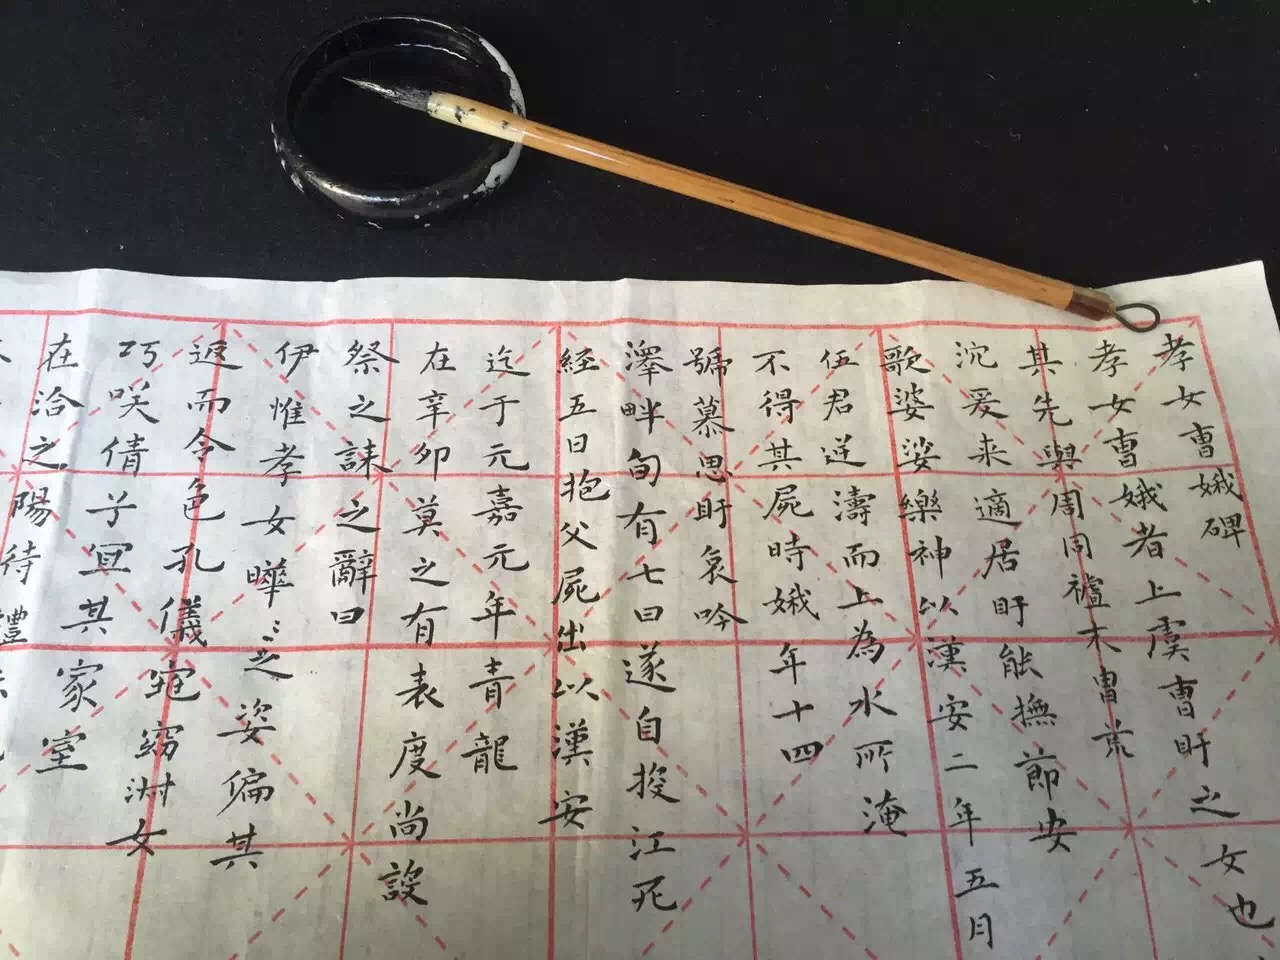 孝女曹娥碑
孝女曹娥者上虞曹盱之女也
其先與周同禮末胄荒
沈爰来適居盱能撫節安
歌婆娑樂神以漢安二年五月
伍君逆濤而上為水所淹
不得其屍時娥年十四
號慕思盱哀吟
澤畔旬有七日遂自投江死
経五日抱父屍出以漢安
迄于元嘉元年青龍
在辛卯莫之有表度尚設
祭之誄之辭曰
伊惟孝女曄〻之姿偏其
返而令色孔儀窈窕淑女
巧咲倩子宜其家室
在洽之陽待禮